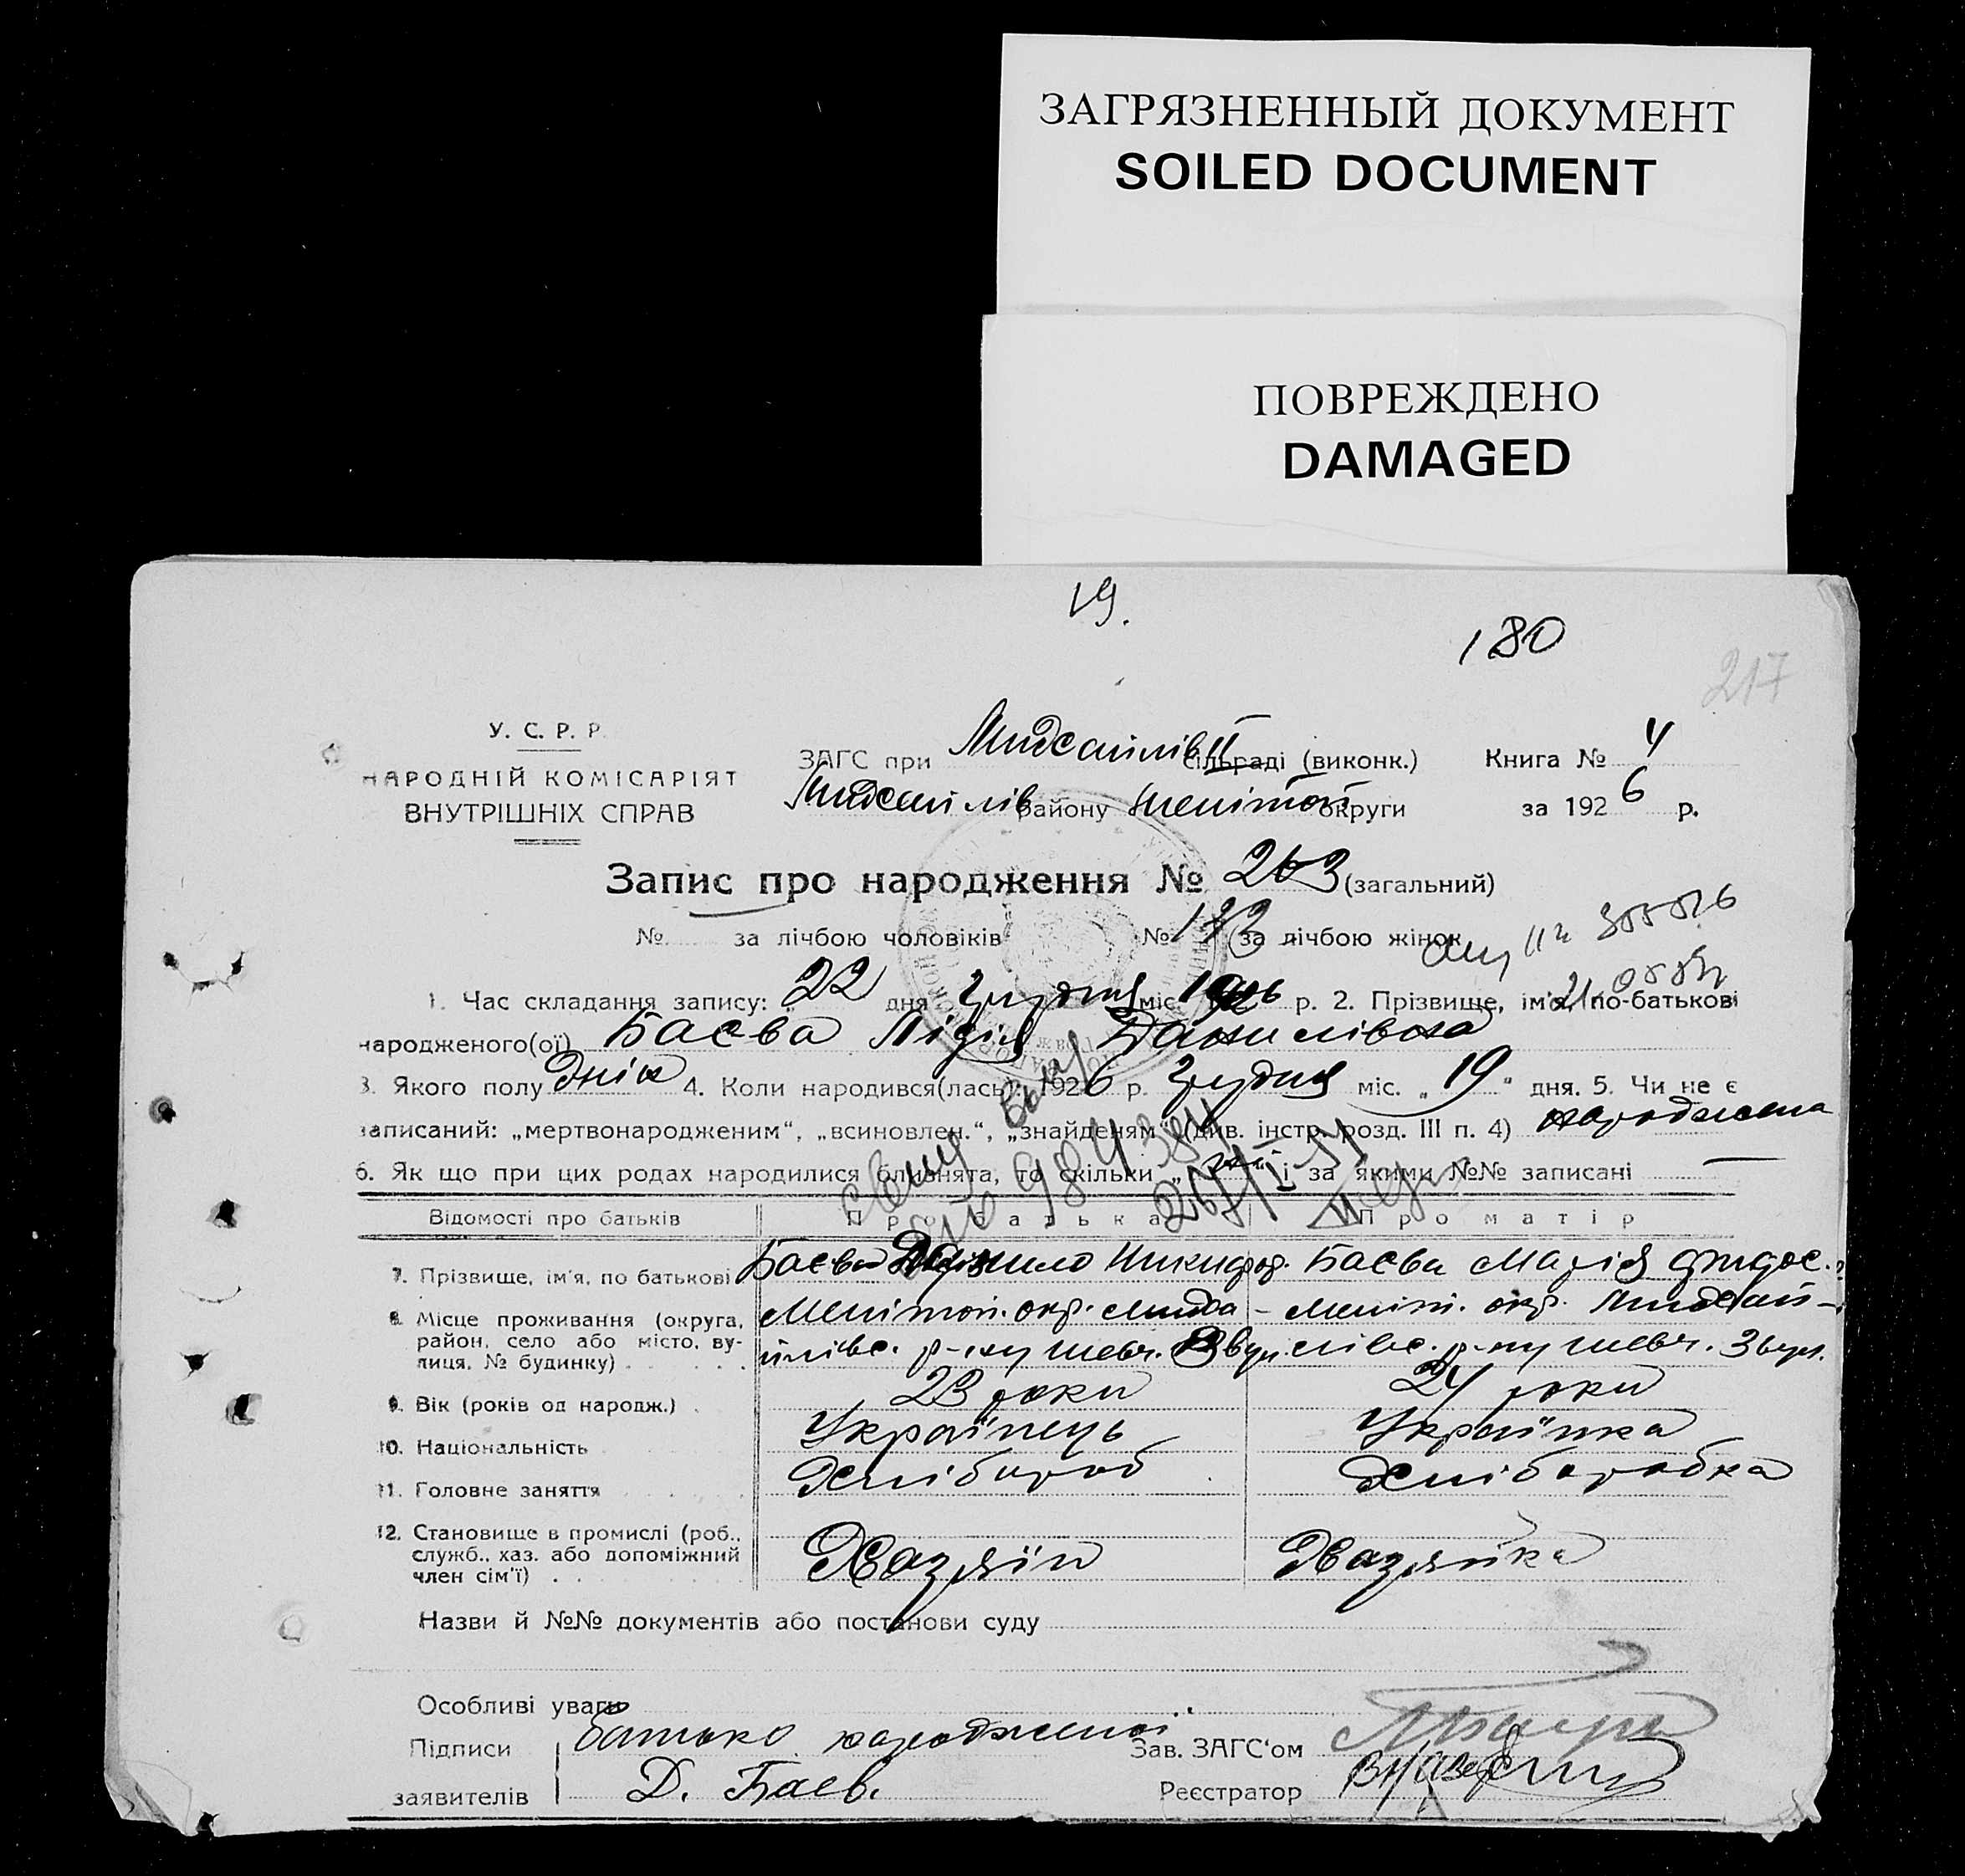 ЗАГРЯЗНЕННЫЙ ДОКУМЕНТ
SOILED DOCUMENT
ПОВРЕЖДЕНО
DAMAGED
19.
180
217
У. С. Р. Р.
НАРОДНІЙ КОМІСАРІЯТ
ВНУТРІШНІХ СПРАВ
ЗАГС при сільраді (виконк.) Книга № 4
району округи за 1926 р.
Запис про народження № 263 (загальний)
№ за лічбою чоловіків № за лічбою жінок
1. Час складання запису: „ 22 дня грудня міс. 1926 р. 2. Прізвище, ім'я, по-батькові
народженого(ої) Баєва Лідія Данилівна
3. Якого полу жін 4. Коли народився(лась): 1926 р. грудня міс. „ 19 " дня. 5. Чи не є
записаний: „мертвонародженим“, „всиновлен.“, „знайденям“ (див. інстр. розд. III п. 4) народжена
6. Як що при цих родах народилися близнята, то скільки „ і за якими №№ записані —
Відомості про батьків Про батька Про матір
7. Прізвище, ім'я, по батькові Баєв Данило Никифор. Баєва Марія
8. Місце проживання (округа, Мелітоп. окр. Меліт. окр.
район, село або місто, ву- р-ну р-ну
лиця, № будинку)
9. Вік (років од народж.) 23 роки 24 роки
10. Національність Українець Українка
11. Головне заняття Хлібороб Хліборобка
12. Становище в промислі (роб.,
служб., хаз. або допоміжний Хвазяїн Хвазяйка
член сім'ї)
Назви й №№ документів або постанови суду
Особливі уваги
Підписи батько народженої Зав. ЗАГС‘ом
заявителів Д. Баєв. Реєстратор